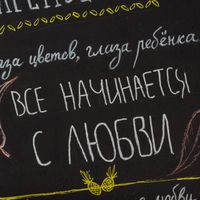 глаза цветов, глаза ребёнка
ВСЕ НАЧИНАЕТСЯ
С ЛЮБВИ